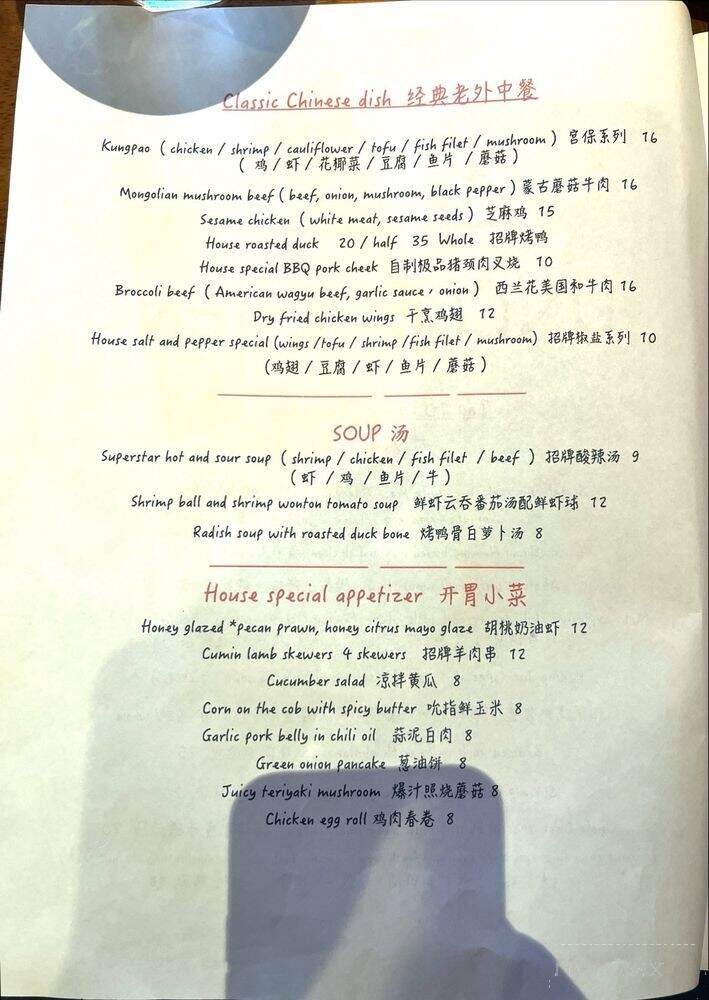 Classic Chinese dish 经典老外中餐
Kungpao ( chicken / shrimp / cauliflower / tofu / fish filet / mushroom ) 宫保系列 16
( 鸡 / 虾 / 花椰菜 / 豆腐 / 鱼片 / 蘑菇 )
Mongolian mushroom beef ( beef, onion, mushroom, black pepper ) 蒙古蘑菇牛肉 16
Sesame chicken ( white meat, sesame seeds ) 芝麻鸡 15
House roasted duck 20 / half 35 Whole 招牌烤鸭
House special BBQ pork cheek 自制极品猪颈肉叉烧 10
Broccoli beef ( American wagyu beef, garlic sauce，onion ) 西兰花美国和牛肉 16
Dry fried chicken wings 干烹鸡翅 12
House salt and pepper special (wings /tofu / shrimp /fish filet / mushroom) 招牌椒盐系列 10
(鸡翅 / 豆腐 / 虾 / 鱼片 / 蘑菇 )
SOUP 汤
Superstar hot and sour soup ( shrimp / chicken / fish filet / beef ) 招牌酸辣汤 9
( 虾 / 鸡 / 鱼片 / 牛 )
Shrimp ball and shrimp wonton tomato soup 鲜虾云吞番茄汤配鲜虾球 12
Radish soup with roasted duck bone 烤鸭骨白萝卜汤 8
House special appetizer 开胃小菜
Honey glazed *pecan prawn, honey citrus mayo glaze 胡桃奶油虾 12
Cumin lamb skewers 4 skewers 招牌羊肉串 12
Cucumber salad 凉拌黄瓜 8
Corn on the cob with spicy butter 吮指鲜玉米 8
Garlic pork belly in chili oil 蒜泥白肉 8
Green onion pancake 葱油饼 8
Juicy teriyaki mushroom 爆汁照烧蘑菇 8
Chicken egg roll 鸡肉春卷 8